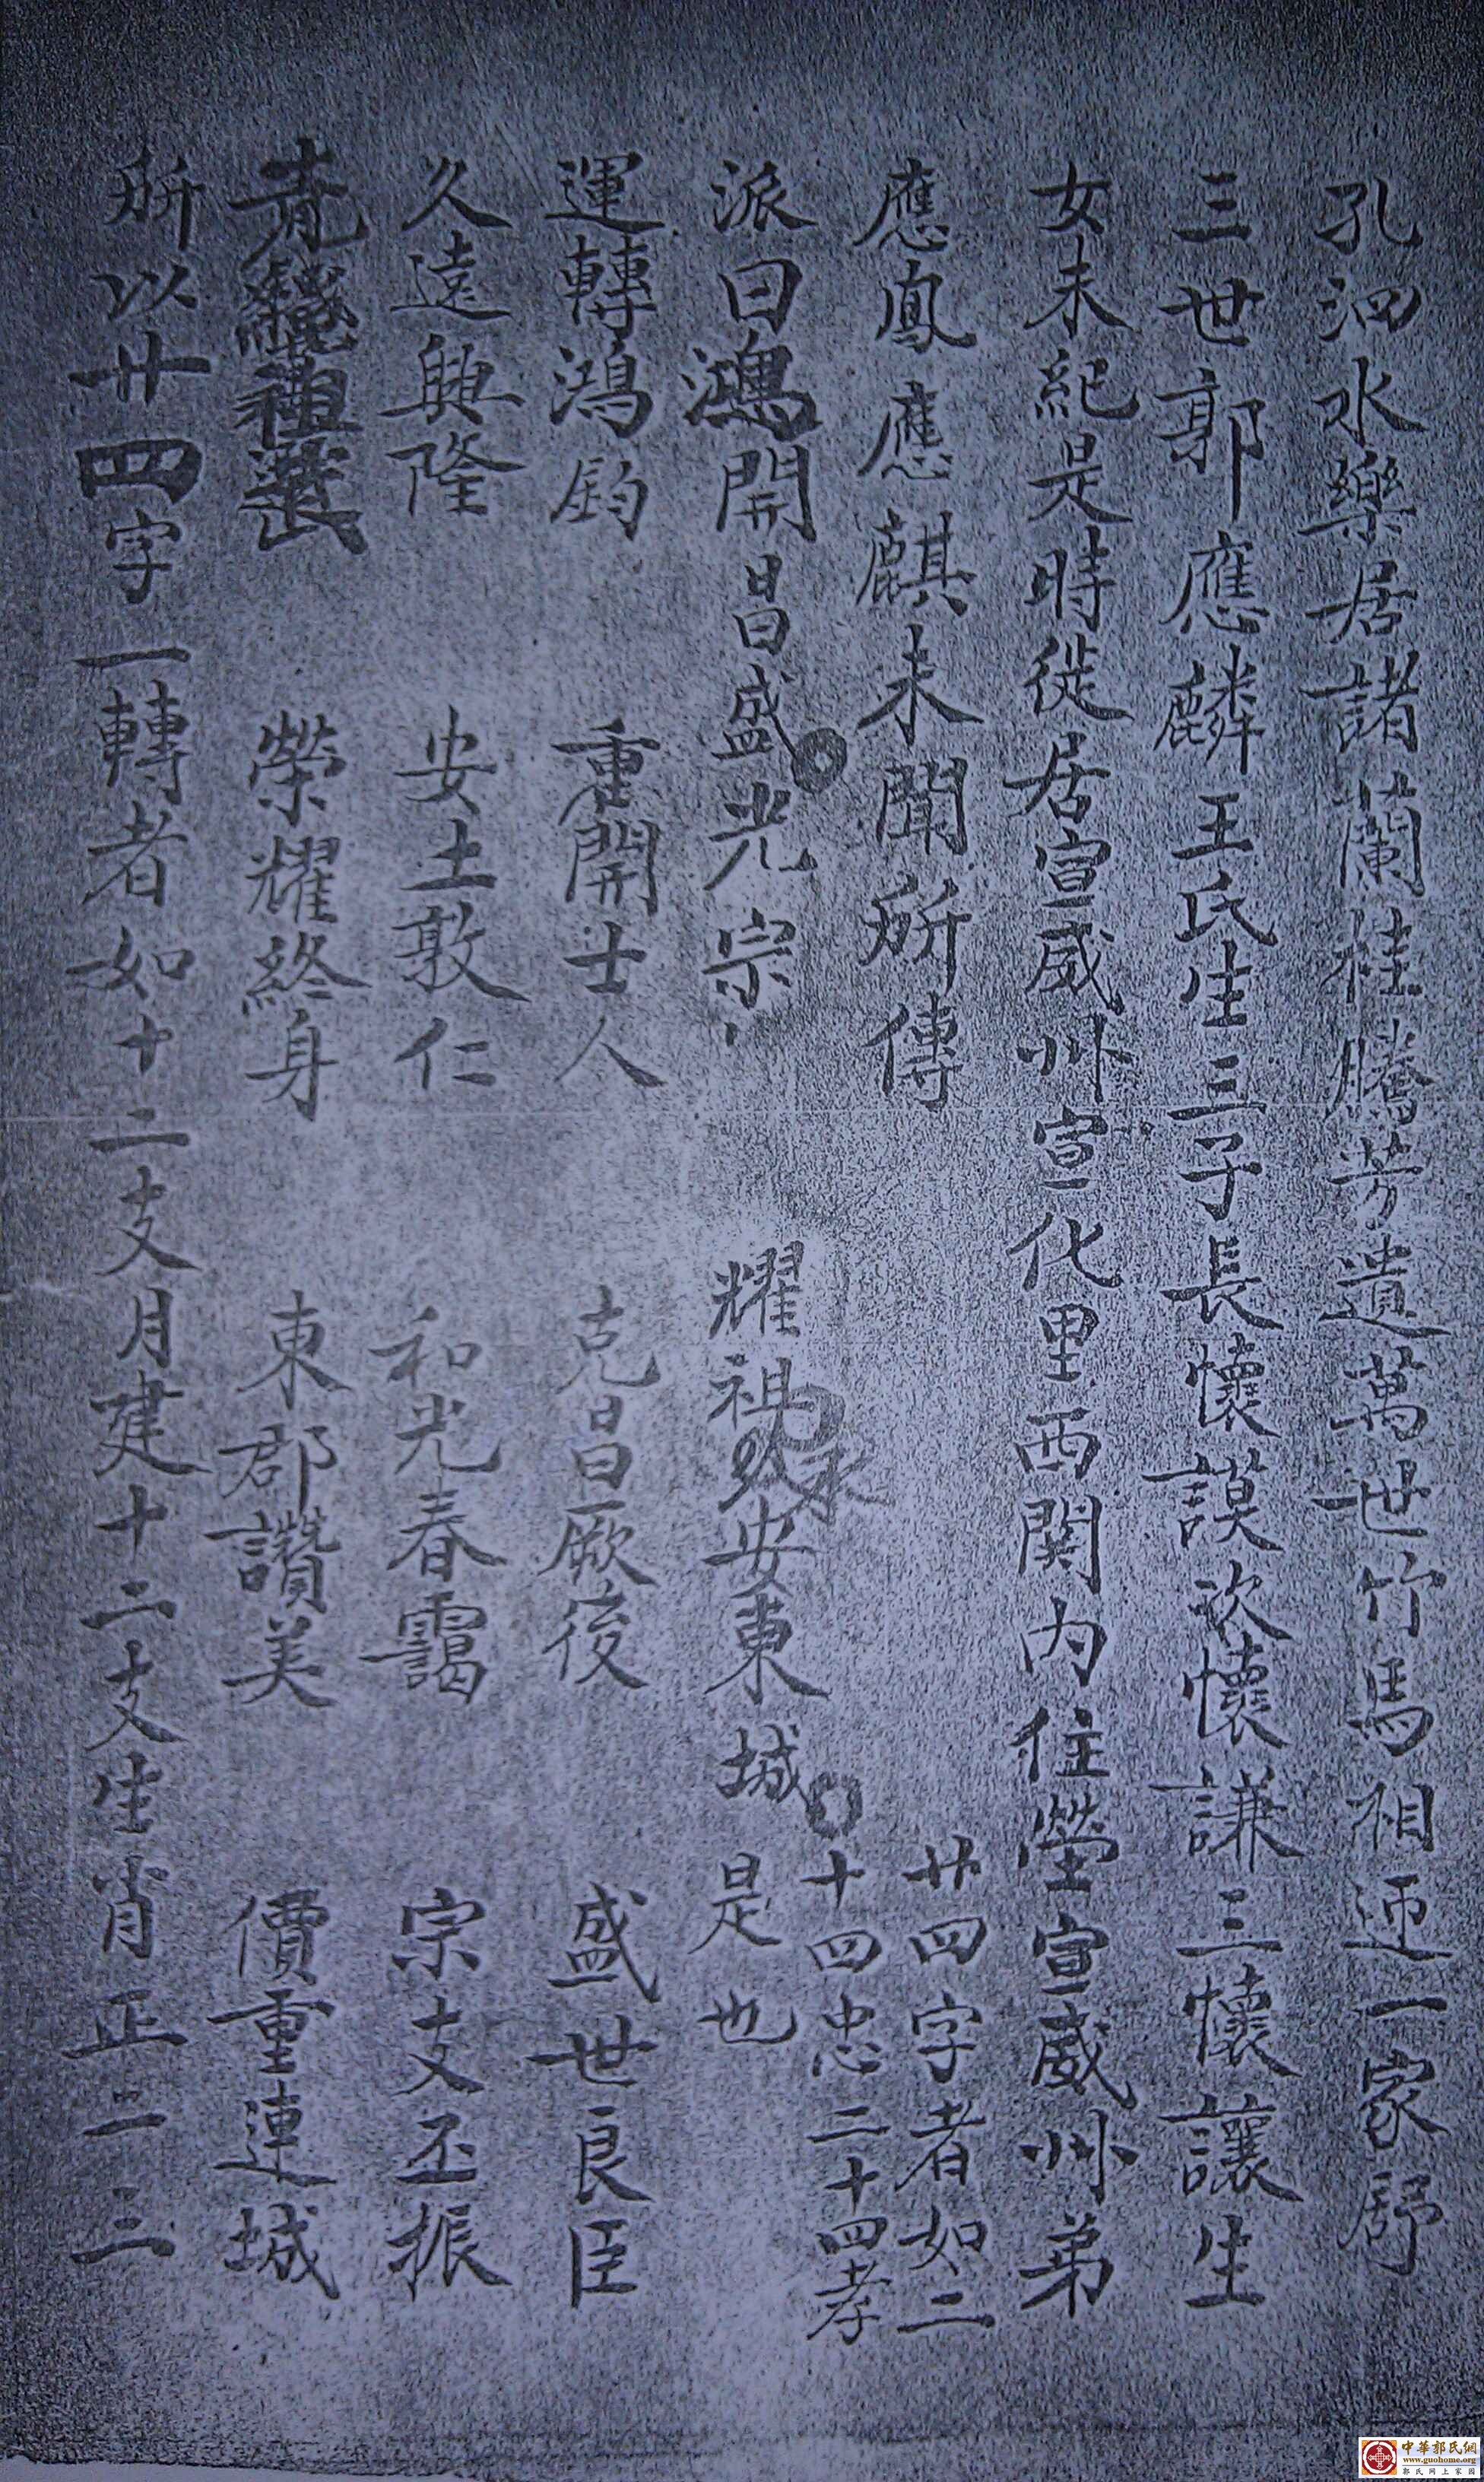 孔泗水樂居諸蘭桂騰芳遺萬世竹馬相迎一家舒
三世郭應麟王氏生三子長懷謨次懷謙三懷讓生
女未紀是時徙居宣威州宣化里西関内住塋宣威州弟
應鳳應麒未聞所傳
廿四字者如二
十四忠二十四孝
派曰鴻開昌盛光宗 耀祖安東城是也
永
運轉鴻鈞 重開士人 克昌厥後 盛世良臣
久遠興隆 安土敦仁 和光春靄 宗支丕振
榮耀終身 東郡讚美 價重連城
所以廿四字一轉者如十二支月建十二支生肖正二三
中華郭氏網
www.guohome.org
郭氏网上家园